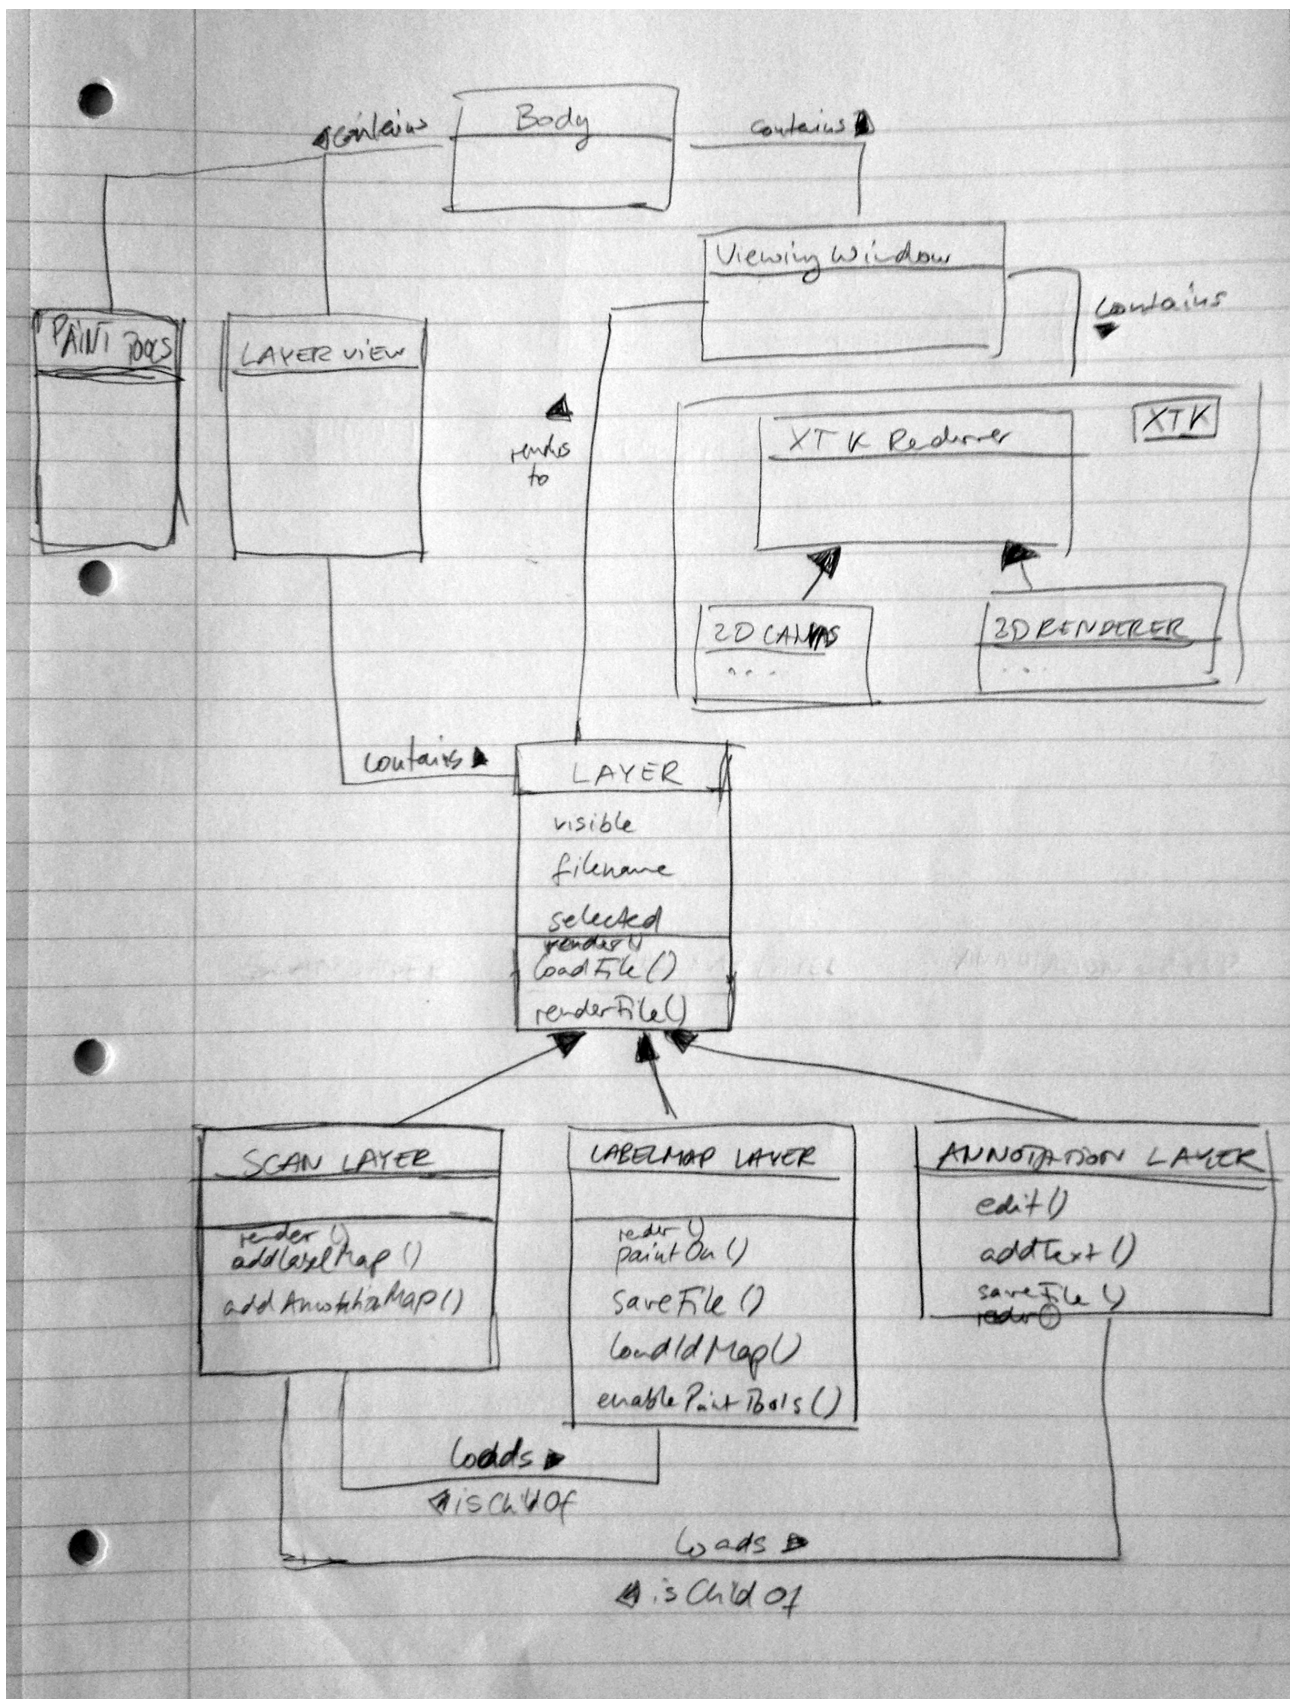 Body
contains
contains
Viewing Window
contains
PAINT TOOLS
LAYER VIEW
renders
to
XTK
XTK Renderer
2D CANVAS
...
3D RENDERER
...
contains
LAYER
visible
filename
selected
render()
loadFile()
renderFile()
SCAN LAYER
render()
addLabelMap()
addAnnotationMap()
LABELMAP LAYER
render()
paintOn()
saveFile()
loadIdMap()
enablePaintTools()
ANNOTATION LAYER
edit()
addText()
saveFile()
render()
loads
isChildOf
loads
isChildOf